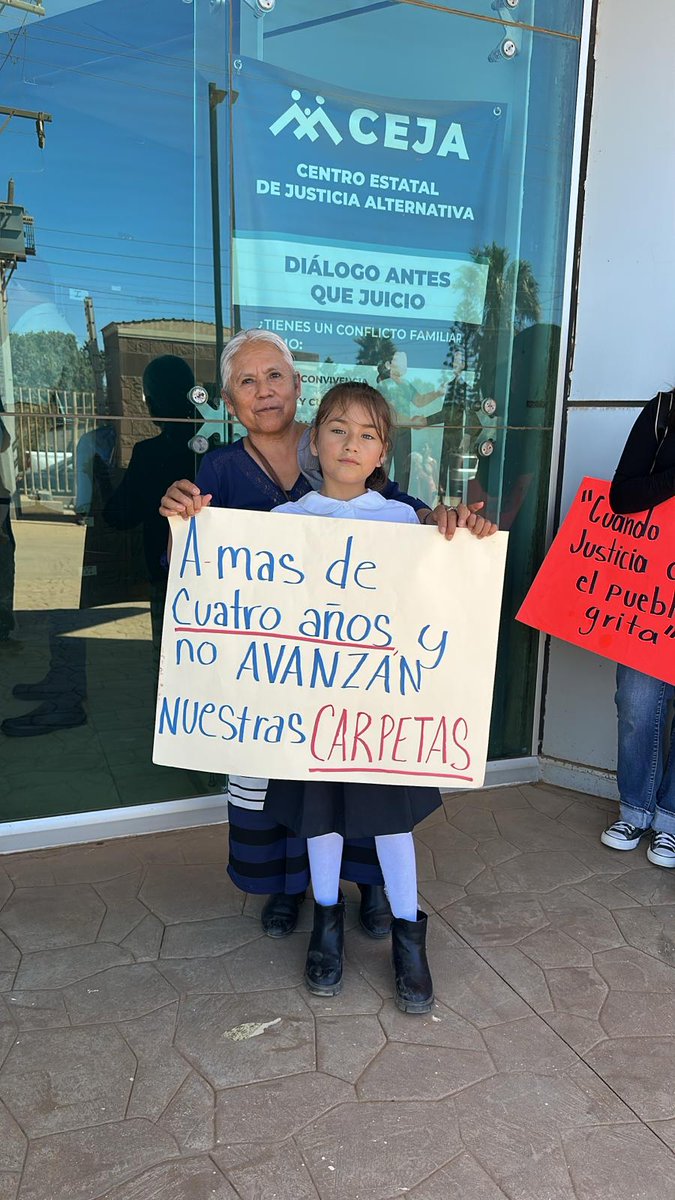 CEJA
CENTRO ESTATAL
DE JUSTICIA ALTERNATIVA
DIÁLOGO ANTES
QUE JUICIO
¿TIENES UN CONFLICTO FAMILIAR
CONVIVENCIA
A mas de
Cuatro años y
no AVANZÁN
NUestras CARPETAS
"Cuando
Justicia
el puebl
grita"